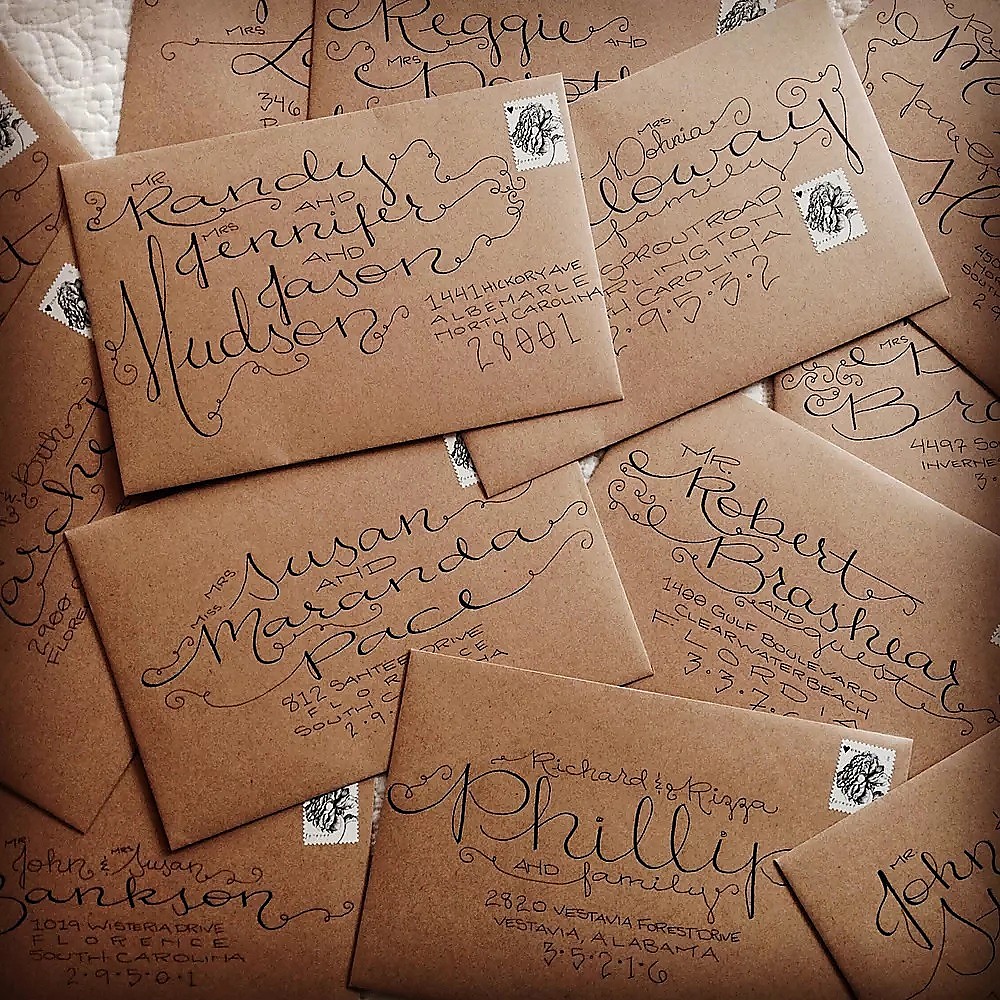 MRS
346
Reggie
AND
MRS
MR
Randy
AND
MRS
Jennifer
AND
Jason
Hudson
1441 HICKORY AVE
ALBEMARLE
NORTH CAROLINA
28001
MRS
Dohnia
family
SPROUT ROAD
CAROLINA
2.9.5.3.2
MRS
Bro
4497 SO
INVERNE
MRS Susan
AND
MISS Maranda
Pace
812 SANTEE DRIVE
FLOR
SOUTH C
2.9.
MR.
Robert
Brashear
AND guest
1400 GULF BOULEVARD
CLEARWATER BEACH
FLORDIA
3.3.7.
Richard & Rizza
Phillip
AND family
2820 VESTAVIA FOREST DRIVE
VESTAVIA, ALABAMA
3.5.2.1.6
MR John & MRS Susan
ankson
1019 WISTERIA DRIVE
FLORENCE
SOUTH CAROLINA
2.9.5.0.1
MR
John
2900
FLORE